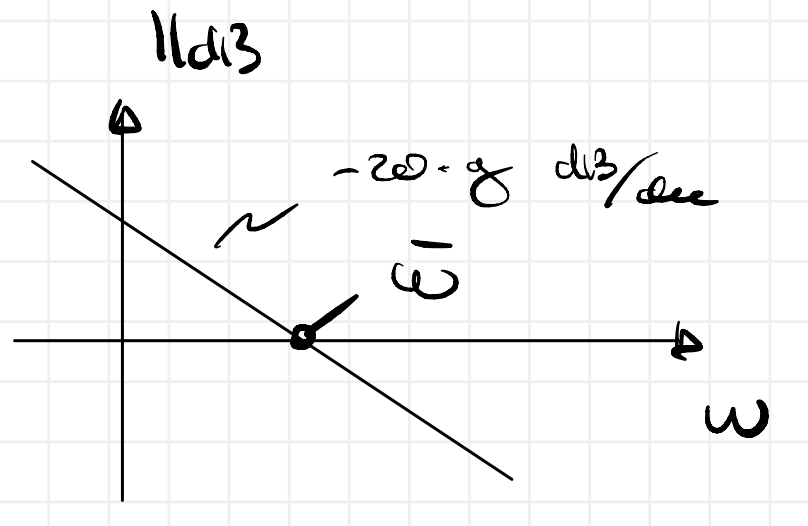 ||dB
-20·g dB/dec
ω̄
ω